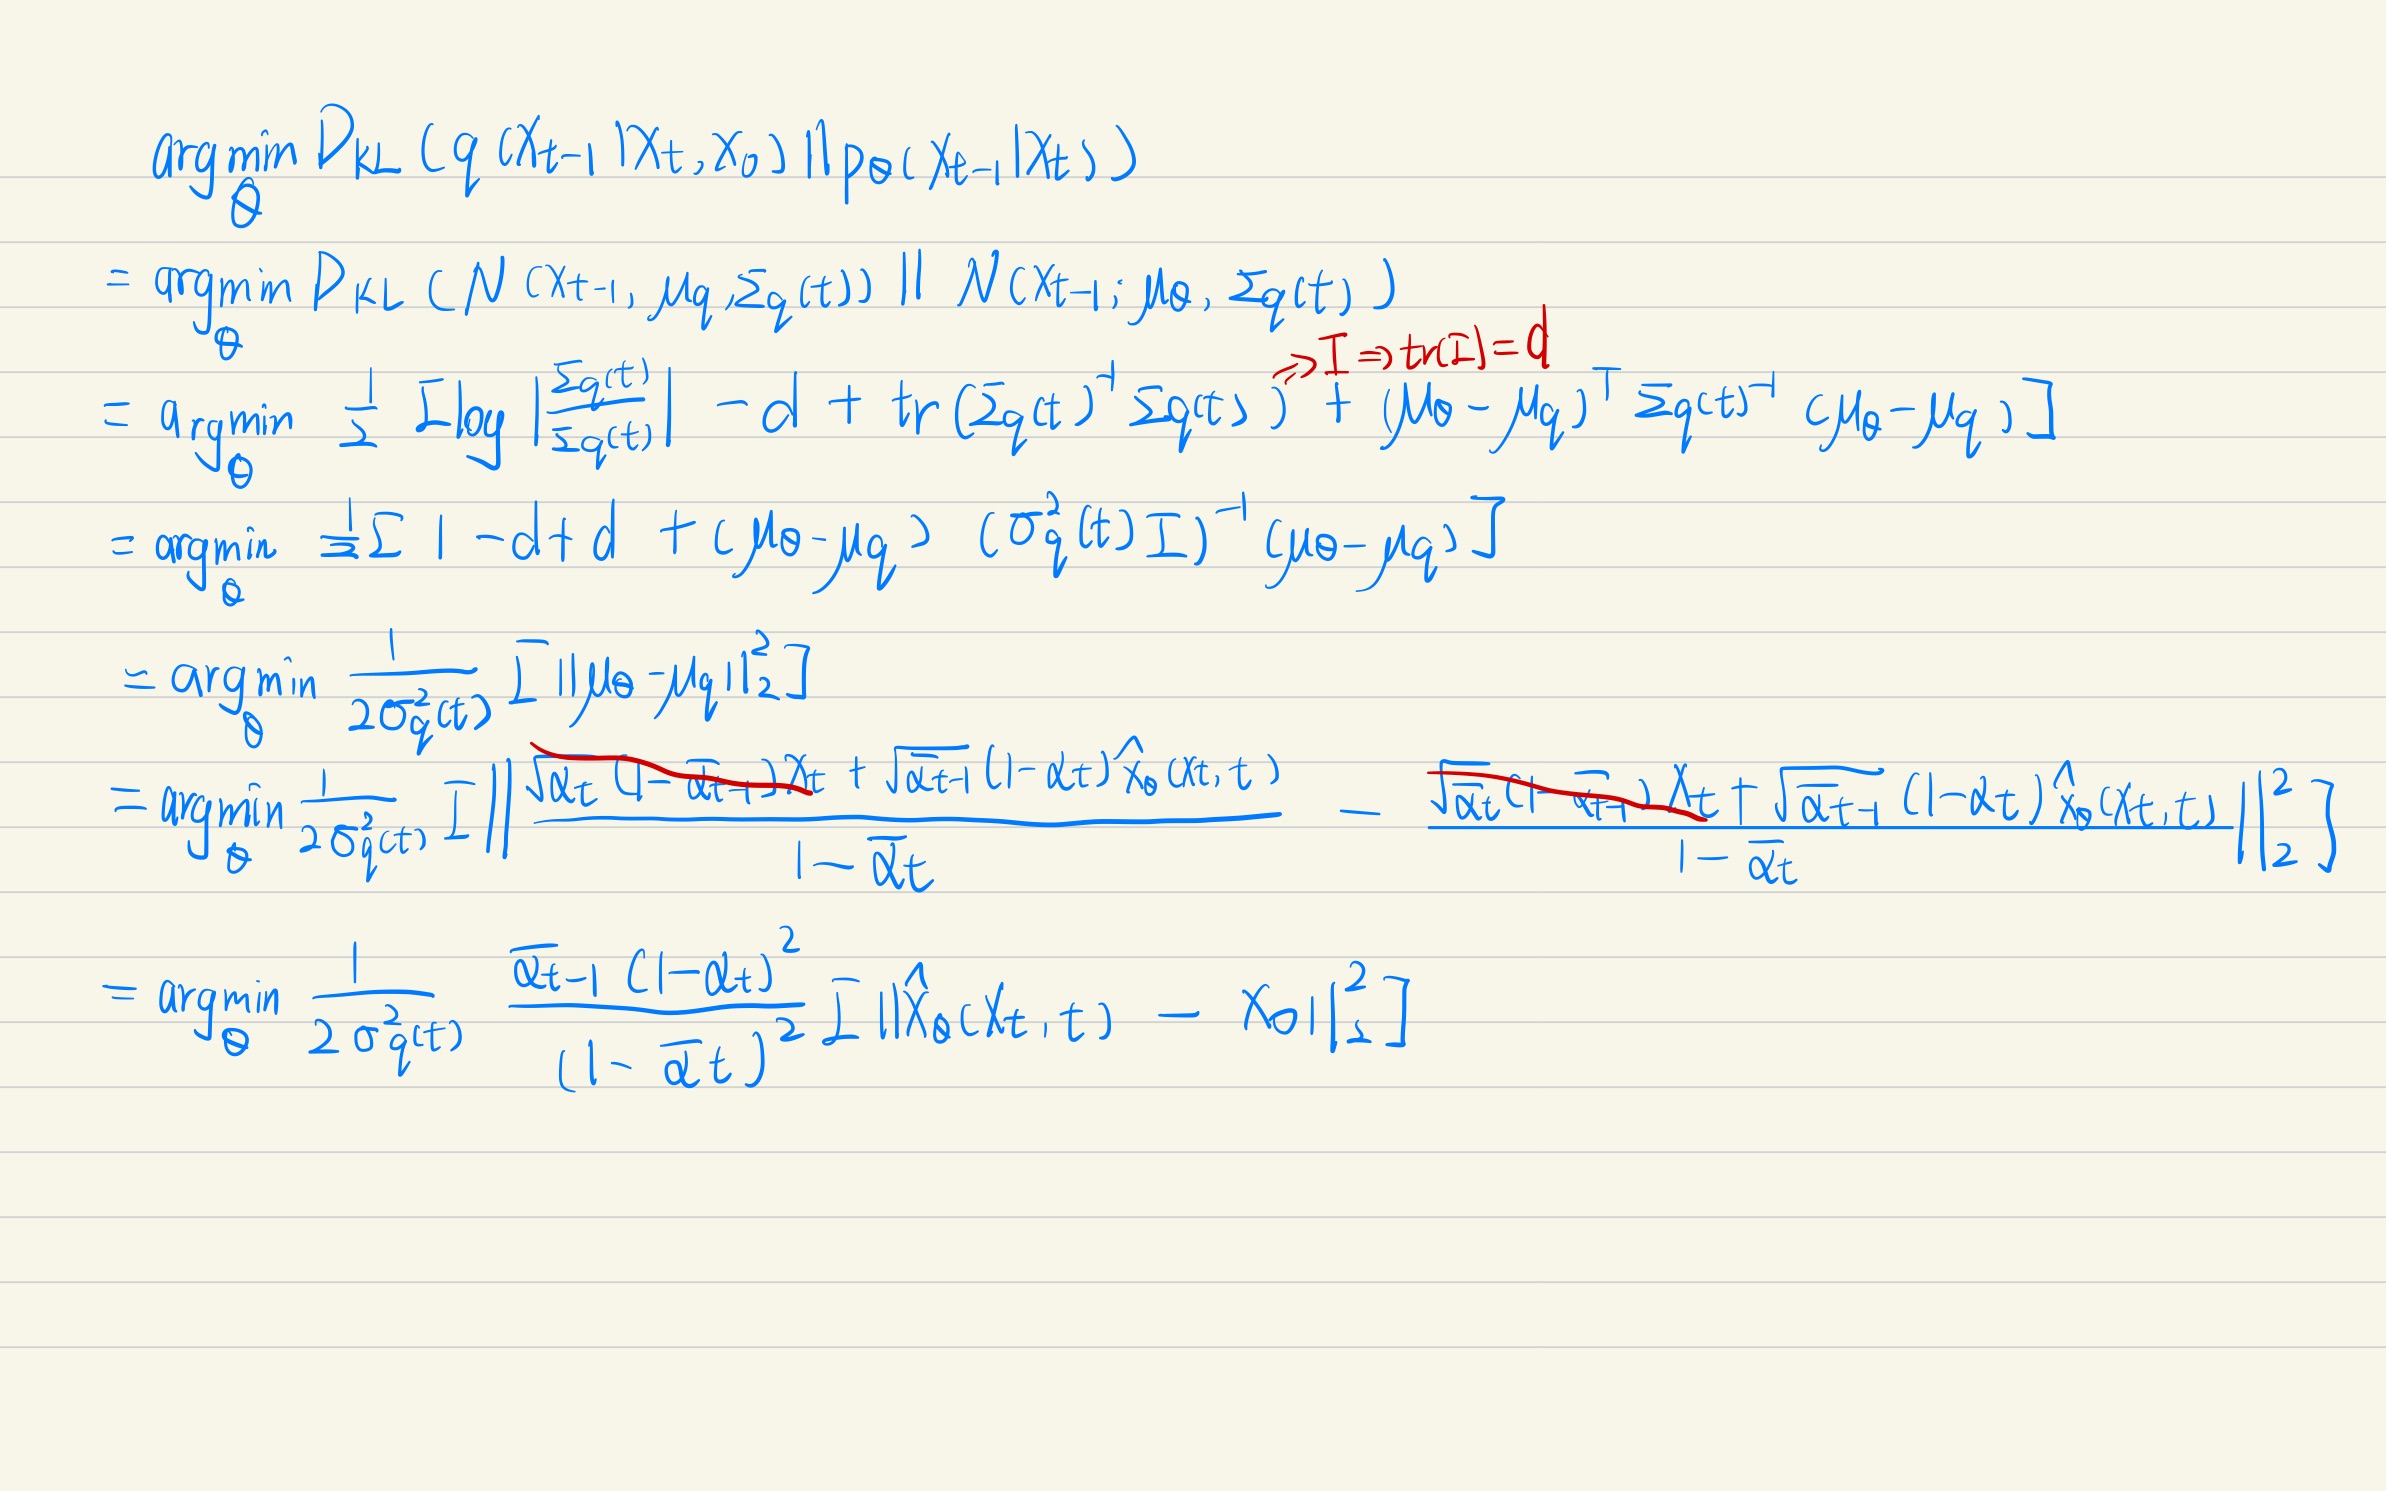 argmin_θ D_KL (q(x_{t-1}|x_t, x_0) || p_θ(x_{t-1}|x_t))
= argmin_θ D_KL (N(x_{t-1}, μ_q, Σ_q(t)) || N(x_{t-1}; μ_θ, Σ_q(t))
⇒ I ⇒ tr(I) = d
= argmin_θ 1/2 [log |Σ_q(t)/Σ_q(t)| - d + tr(Σ_q(t)^{-1} Σ_q(t)) + (μ_θ - μ_q)^T Σ_q(t)^{-1} (μ_θ - μ_q)]
= argmin_θ 1/2 [1 - d + d + (μ_θ - μ_q) (σ_q^2(t) I)^{-1} (μ_θ - μ_q)]
= argmin_θ 1/(2σ_q^2(t)) [||μ_θ - μ_q||_2^2]
= argmin_θ 1/(2σ_q^2(t)) [|| (√α_t (1 - ᾱ_{t-1}) x_t + √ᾱ_{t-1} (1 - α_t) x̂_θ(x_t, t))/(1 - ᾱ_t) - (√ᾱ_t (1 - ᾱ_{t-1}) x_t + √ᾱ_{t-1} (1 - α_t) x̂_θ(x_t, t))/(1 - ᾱ_t) ||_2^2]
= argmin_θ 1/(2σ_q^2(t)) (ᾱ_{t-1} (1 - α_t)^2)/((1 - ᾱ_t)^2) [||x̂_θ(x_t, t) - x_0||_2^2]